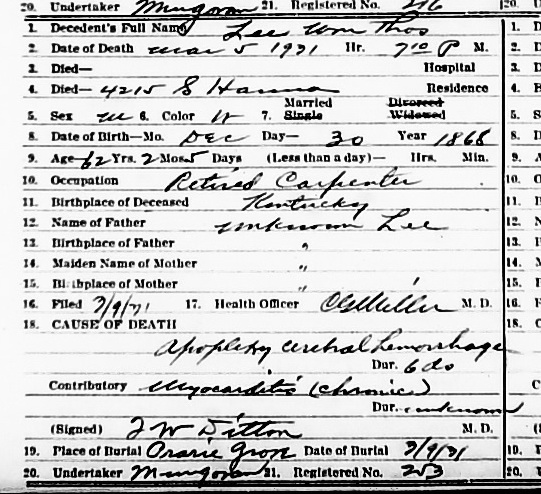 20. Undertaker Mungovan 21. Registered No. 216
1. Decedent's Full Name Lee Wm Thos
2. Date of Death Mar 5 1931 Hr. 7 10 P M.
3. Died— Hospital
4. Died— 4215 S Hanna Residence
5. Sex M 6. Color W 7. Married Single Divorced Widowed
8. Date of Birth—Mo. Dec Day— 30 Year 1868
9. Age 62 Yrs. 2 Mos. 5 Days (Less than a day)— Hrs. Min.
10. Occupation Retired Carpenter
11. Birthplace of Deceased Kentucky
12. Name of Father unknown Lee
13. Birthplace of Father "
14. Maiden Name of Mother "
15. Birthplace of Mother "
16. Filed 3/9/31 17. Health Officer Miller M. D.
18. CAUSE OF DEATH
Apoplexy cerebral hemorrhage
Dur. 6 do
Contributory Myocarditis (chronic)
Dur. unknown
(Signed) J W Ditton M. D.
19. Place of Burial Prarie Grove Date of Burial 3/9/31
20. Undertaker Mungovan 21. Registered No. 253